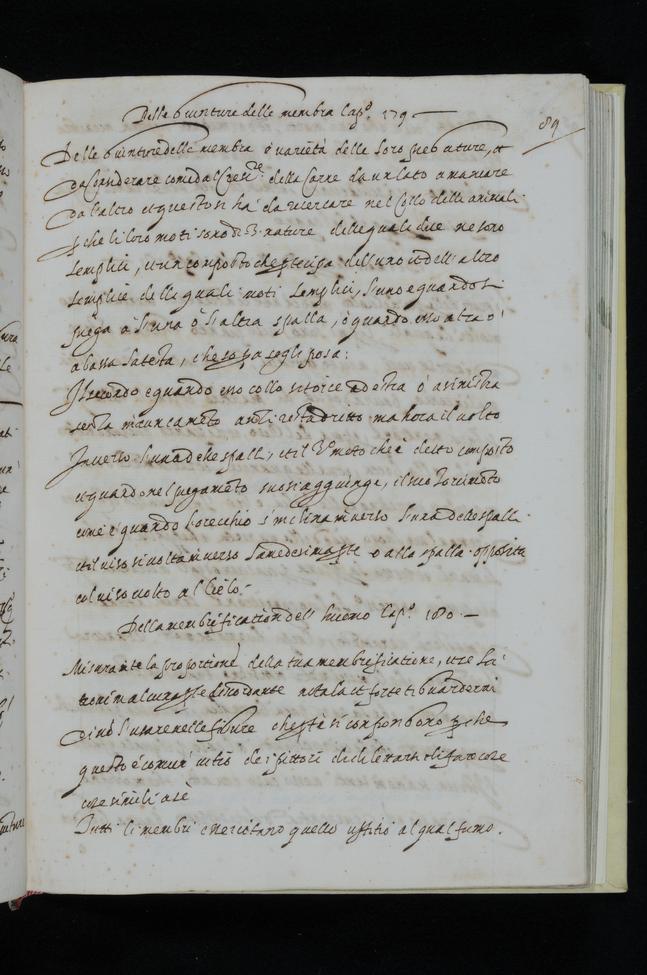 Delle Giunture delle membra Cap.º 179
89
Delle Giunture delle membra è varietà delle loro piegature, et
da Considerare come dal Cre della Carne da un lato a mancare
da l'altro et questo si ha da ricercare nel Collo delle animali
p che li loro moti sono di 3 nature delle quali due ne sono
semplici, et un composto che participa dell'uno et dell'altro
semplice delli quali moti semplici, l'uno è quando si
piega a l'una o l'altra spalla, o quando esso alza o
abassa la testa, che sopra segli posa:
Il secondo è quando esso collo si torce a destra o a sinistra
senza incurvamento anzi resta dritto ma ha il volto
Inverso l'una delle spalle, et il 3º moto che è detto composito
è quando nel piegamento suo si aggiunge il suo torcimento
come è quando l'orecchio s'inclina inverso l'una delle spalle
et il viso si volta inverso la medesima pte o alla spalla opposita
col viso volto al Cielo.
Della membrificatione dell'huomo Cap.º 180
Misura in te la proportione della tua membrificatione, et se la
trovi in alcuna pte discordante notala et forte ti guarderai
di no l'usare nelle figure che p te si conpongono p che
questo è comun vitio de pittori di dilettarsi di far cose
cose simili a sè
Tutti li membri exercitano quello uffitio al qual furno.